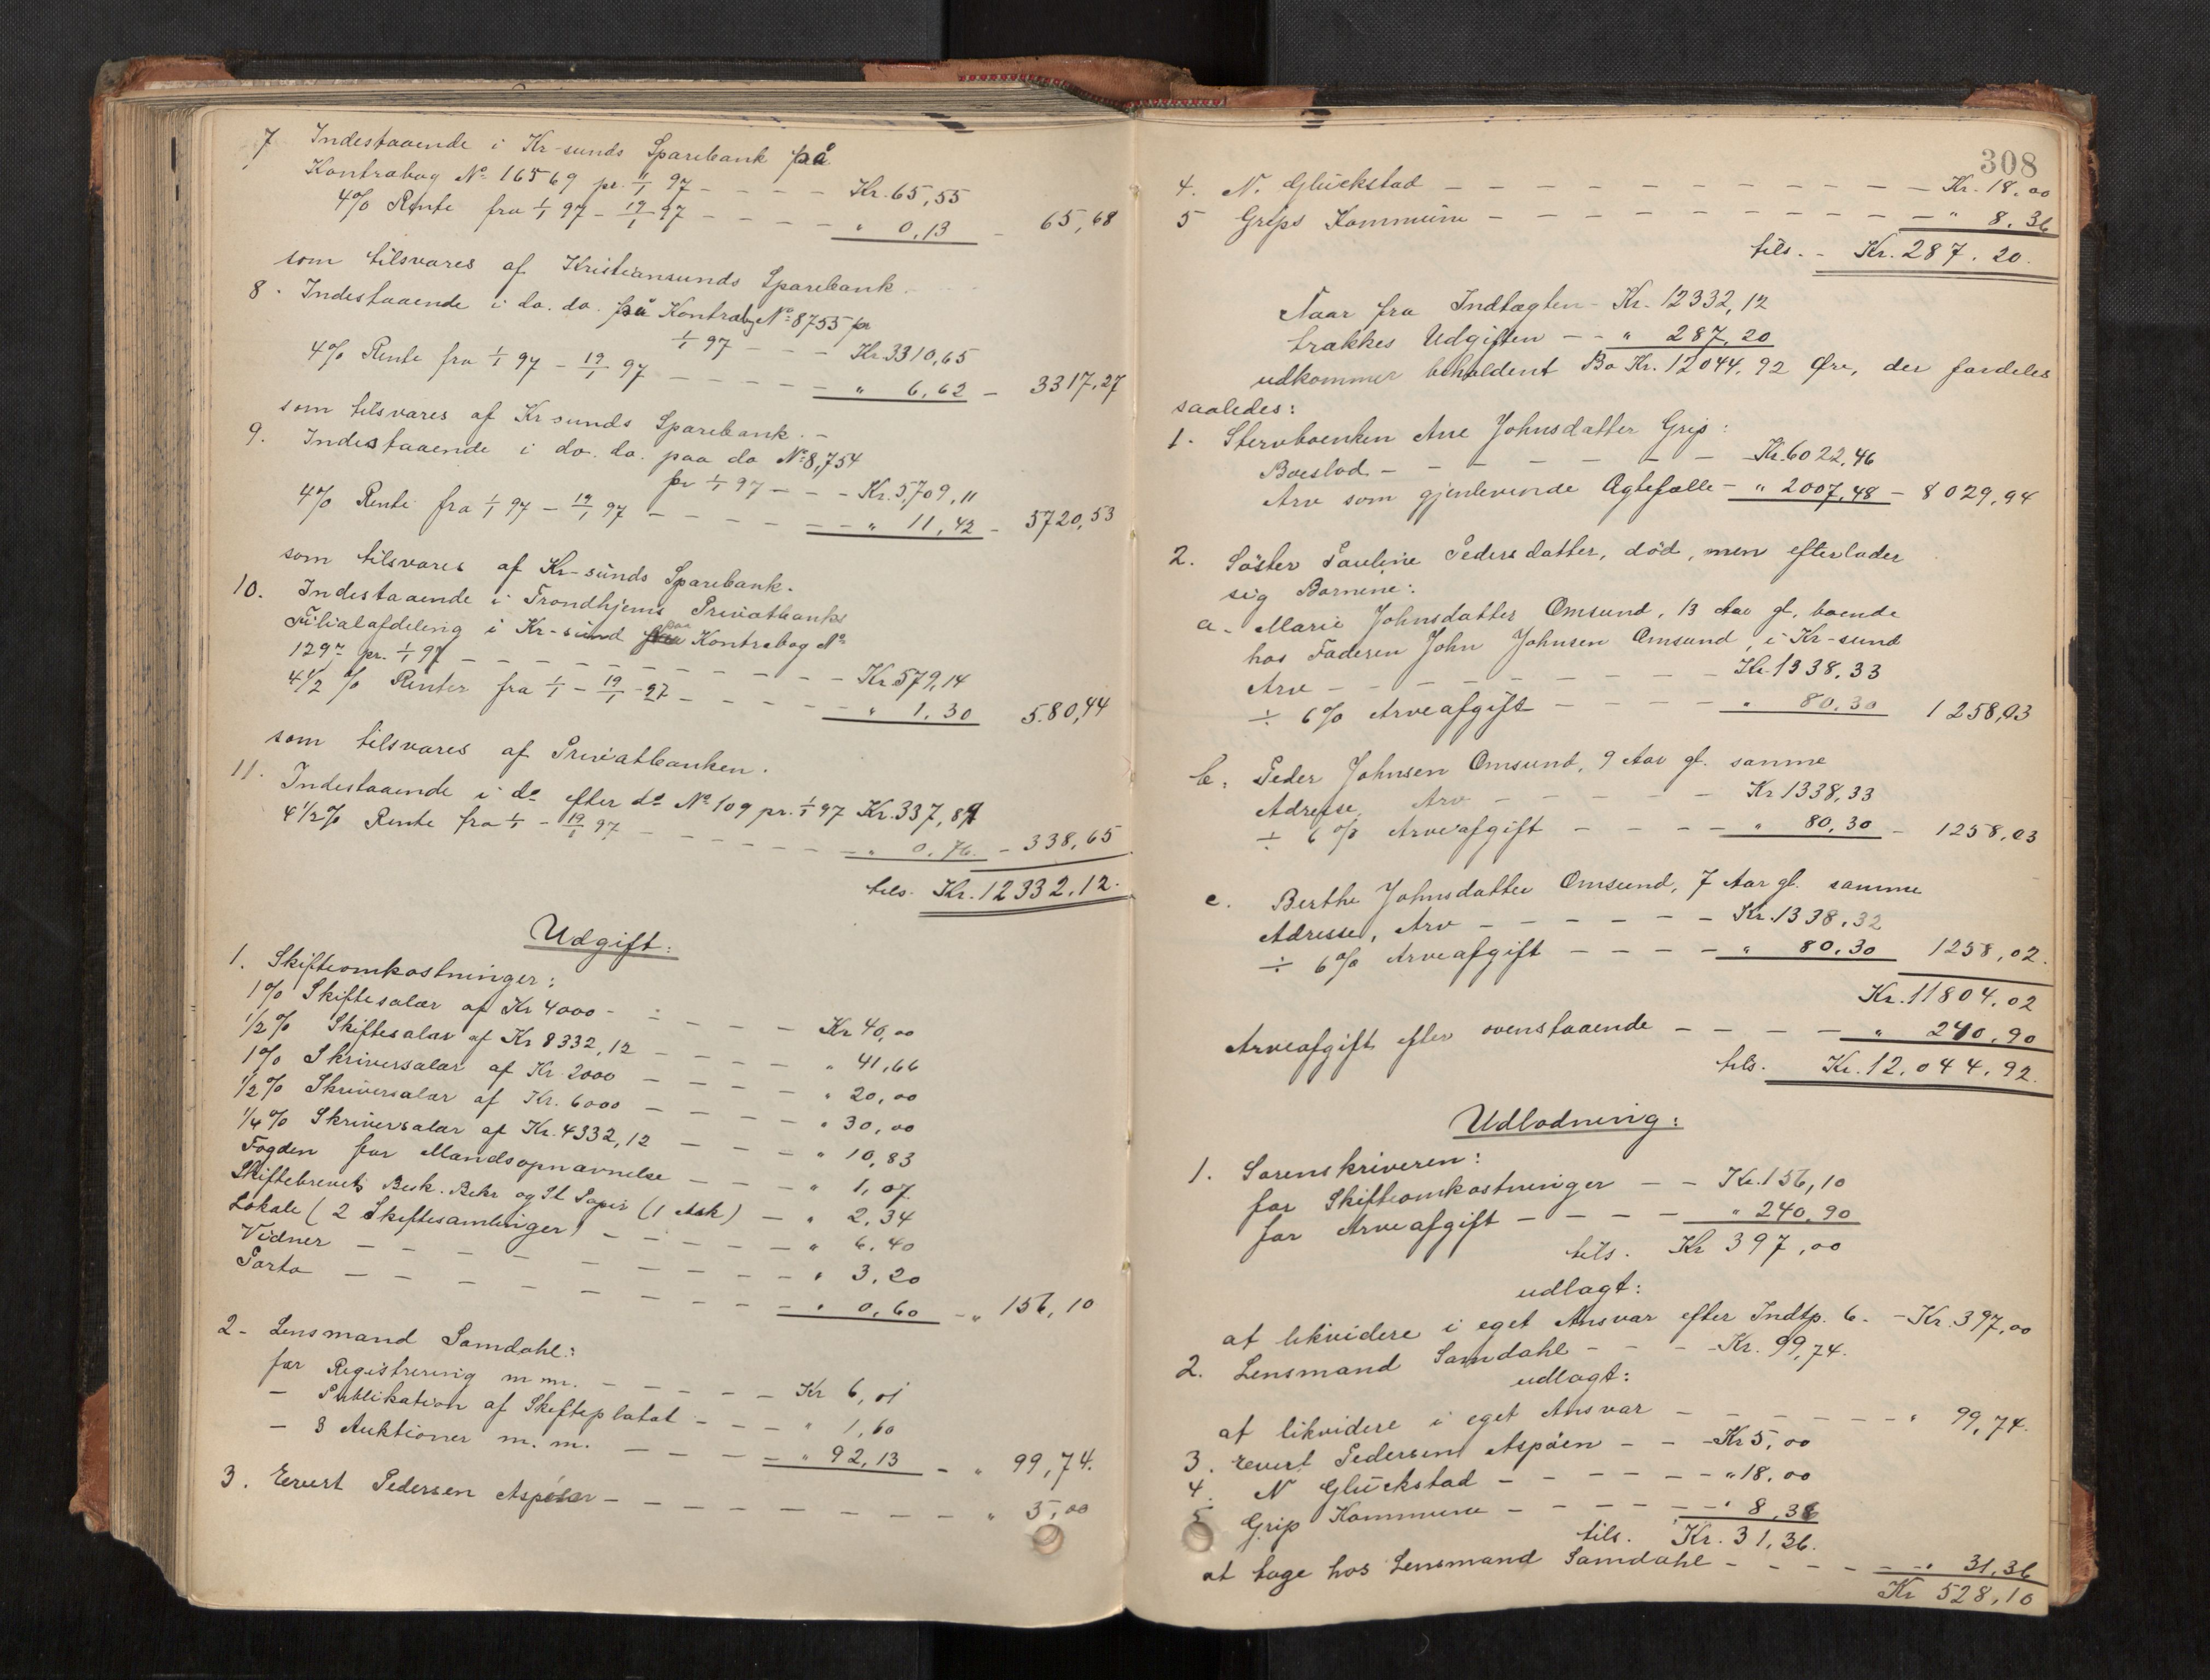 7 Indestaaende i Kr-sunds Sparebank på
Kontrabog No 16569 pr. 1/1 97 - - - - Kr. 65,55
4% Rente fra 1/1 97 - 19/1 97 - - - - " 0,13 - 65,68
som tilsvares af Kristiansunds Sparebank.
8. Indestaaende i do. do. på Kontrabg No 8755 pr
1/1 97 - - - Kr. 3310,65
4% Rente fra 1/1 97 - 19/1 97 - - - - - " 6,62 - 3317,27
som tilsvares af Kr sunds Sparebank. -
9. Indestaaende i do. do. paa do No 8,754
pr 1/1 97 - - - Kr. 5,709,11
4% Rente fra 1/1 97 - 19/1 97 - - - - - - " 11,42 - 5720,53
som tilsvares af Kr-sunds Sparebank.
10. Indestaaende i Trondhjems Privatbanks
Filialafdeling i Kr-sund paa Kontrabog No
1297 pr. 1/1 97 - - - - - - - - - Kr. 579,14
4 1/2 % Renter fra 1/1 - 19/1 - 97 - - - - - " 1,30 580,44
som tilsvares af Privatbanken.
11. Indestaaende i do efter do No 109 pr. 1/1 97 Kr. 337,89
4 1/2% Rente fra 1/1 - 19/1 97 - - - - - - - " 0,76. - 338,65
tils. Kr. 12332,12.
Udgift:
1. Skifteomkostninger:
1% Skiftesalær af Kr 4000 - - - - - Kr 40,00
1/2% Skiftesalær af Kr 8332,12 - - - - " 41,66
1% Skriversalær af Kr. 2000 - - - - " 20,00
1/2% Skriversalær af Kr. 6000 - - - - " 30,00
1/4% Skriversalær af Kr. 4332,12 - - - " 10,83
Fogden for Mandsopnævnelse - - - - " 1,07
Skiftebrevets Besk. Bekr og St Papir (1 Ark) - " 2,34
Lokale (2 Skiftesamlinger) - - - - - " 6,40
Vidner - - - - - - - - - " 3,20
Porto - - - - - - - - - " 0,60 - " 156,10
2- Lensmand Samdahl:
for Registrering m m. - - - - - Kr 6,01
- Publikation af Skifteplakat - - - " 1,60
- 3 Auktioner m. m. - - - - - " 92,13 - " 99,74.
3. Evert Pedersen Aspøen - - - - - - - - - " 5,00
308
4. N. Glückstad - - - - - - - - - - - Kr. 18,00
5 Grips Kommune - - - - - - - - - - " 8,36
tils. - Kr. 287.20.
Naar fra Indtægten - Kr. 12332,12
trækkes Udgiften - - " 287,20
udkommer beholdent Bo Kr. 12044,92 Øre, der fordeles
saaledes:
1. Stervboenken Ane Johnsdatter Grip:
Boeslod - - - - - - - - Kr. 6022,46
Arv som gjenlevende Ægtefælle - " 2007,48 - 8029,94
2. Søster Pauline Pedersdatter, død, men efterlader
sig Børnene:
a- Marie Johnsdatter Omsund, 13 Aar gl. boende
hos Faderen John Johnsen Omsund, i Kr-sund
Arv - - - - - - - - - Kr. 1338,33
÷ 6% Arveafgift - - - - - " 80,30 1258,03
b: Peder Johnsen Omsund, 9 Aar gl. samme
Adresse, Arv - - - - - - Kr 1338,33
÷ 6% Arveafgift - - - - " 80,30 - 1258,03
c. Berthe Johnsdatter Omsund, 7 Aar gl. samme
Adresse, Arv - - - - - - Kr. 1338,32
÷ 6% Arveafgift - - - - - " 80,30 1258,02.
Kr. 11804,02
Arveafgift efter ovenstaaende - - - - " 240,90
tils. Kr. 12.044,92.
Udlodning:
1. Sorenskriveren:
for Skifteomkostninger - - Kr. 156,10
for Arveafgift - - - - " 240.90
tils. Kr 397,00
udlagt:
at likvidere i eget Ansvar efter Indtp. 6. - Kr. 397,00
2. Lensmand Samdahl - - - - Kr. 99,74.
udlagt:
at likvidere i eget Ansvar - - - - - - - " 99,74.
3. Evert Pedersen Aspøen - - - Kr 5,00
4. N Glückstad - - - - - - " 18,00
5 Grip Kommune - - - - - - " 8,36
tils. Kr. 31,36.
at tage hos Lensmand Samdahl - - - - - " 31,36
Kr 528,10